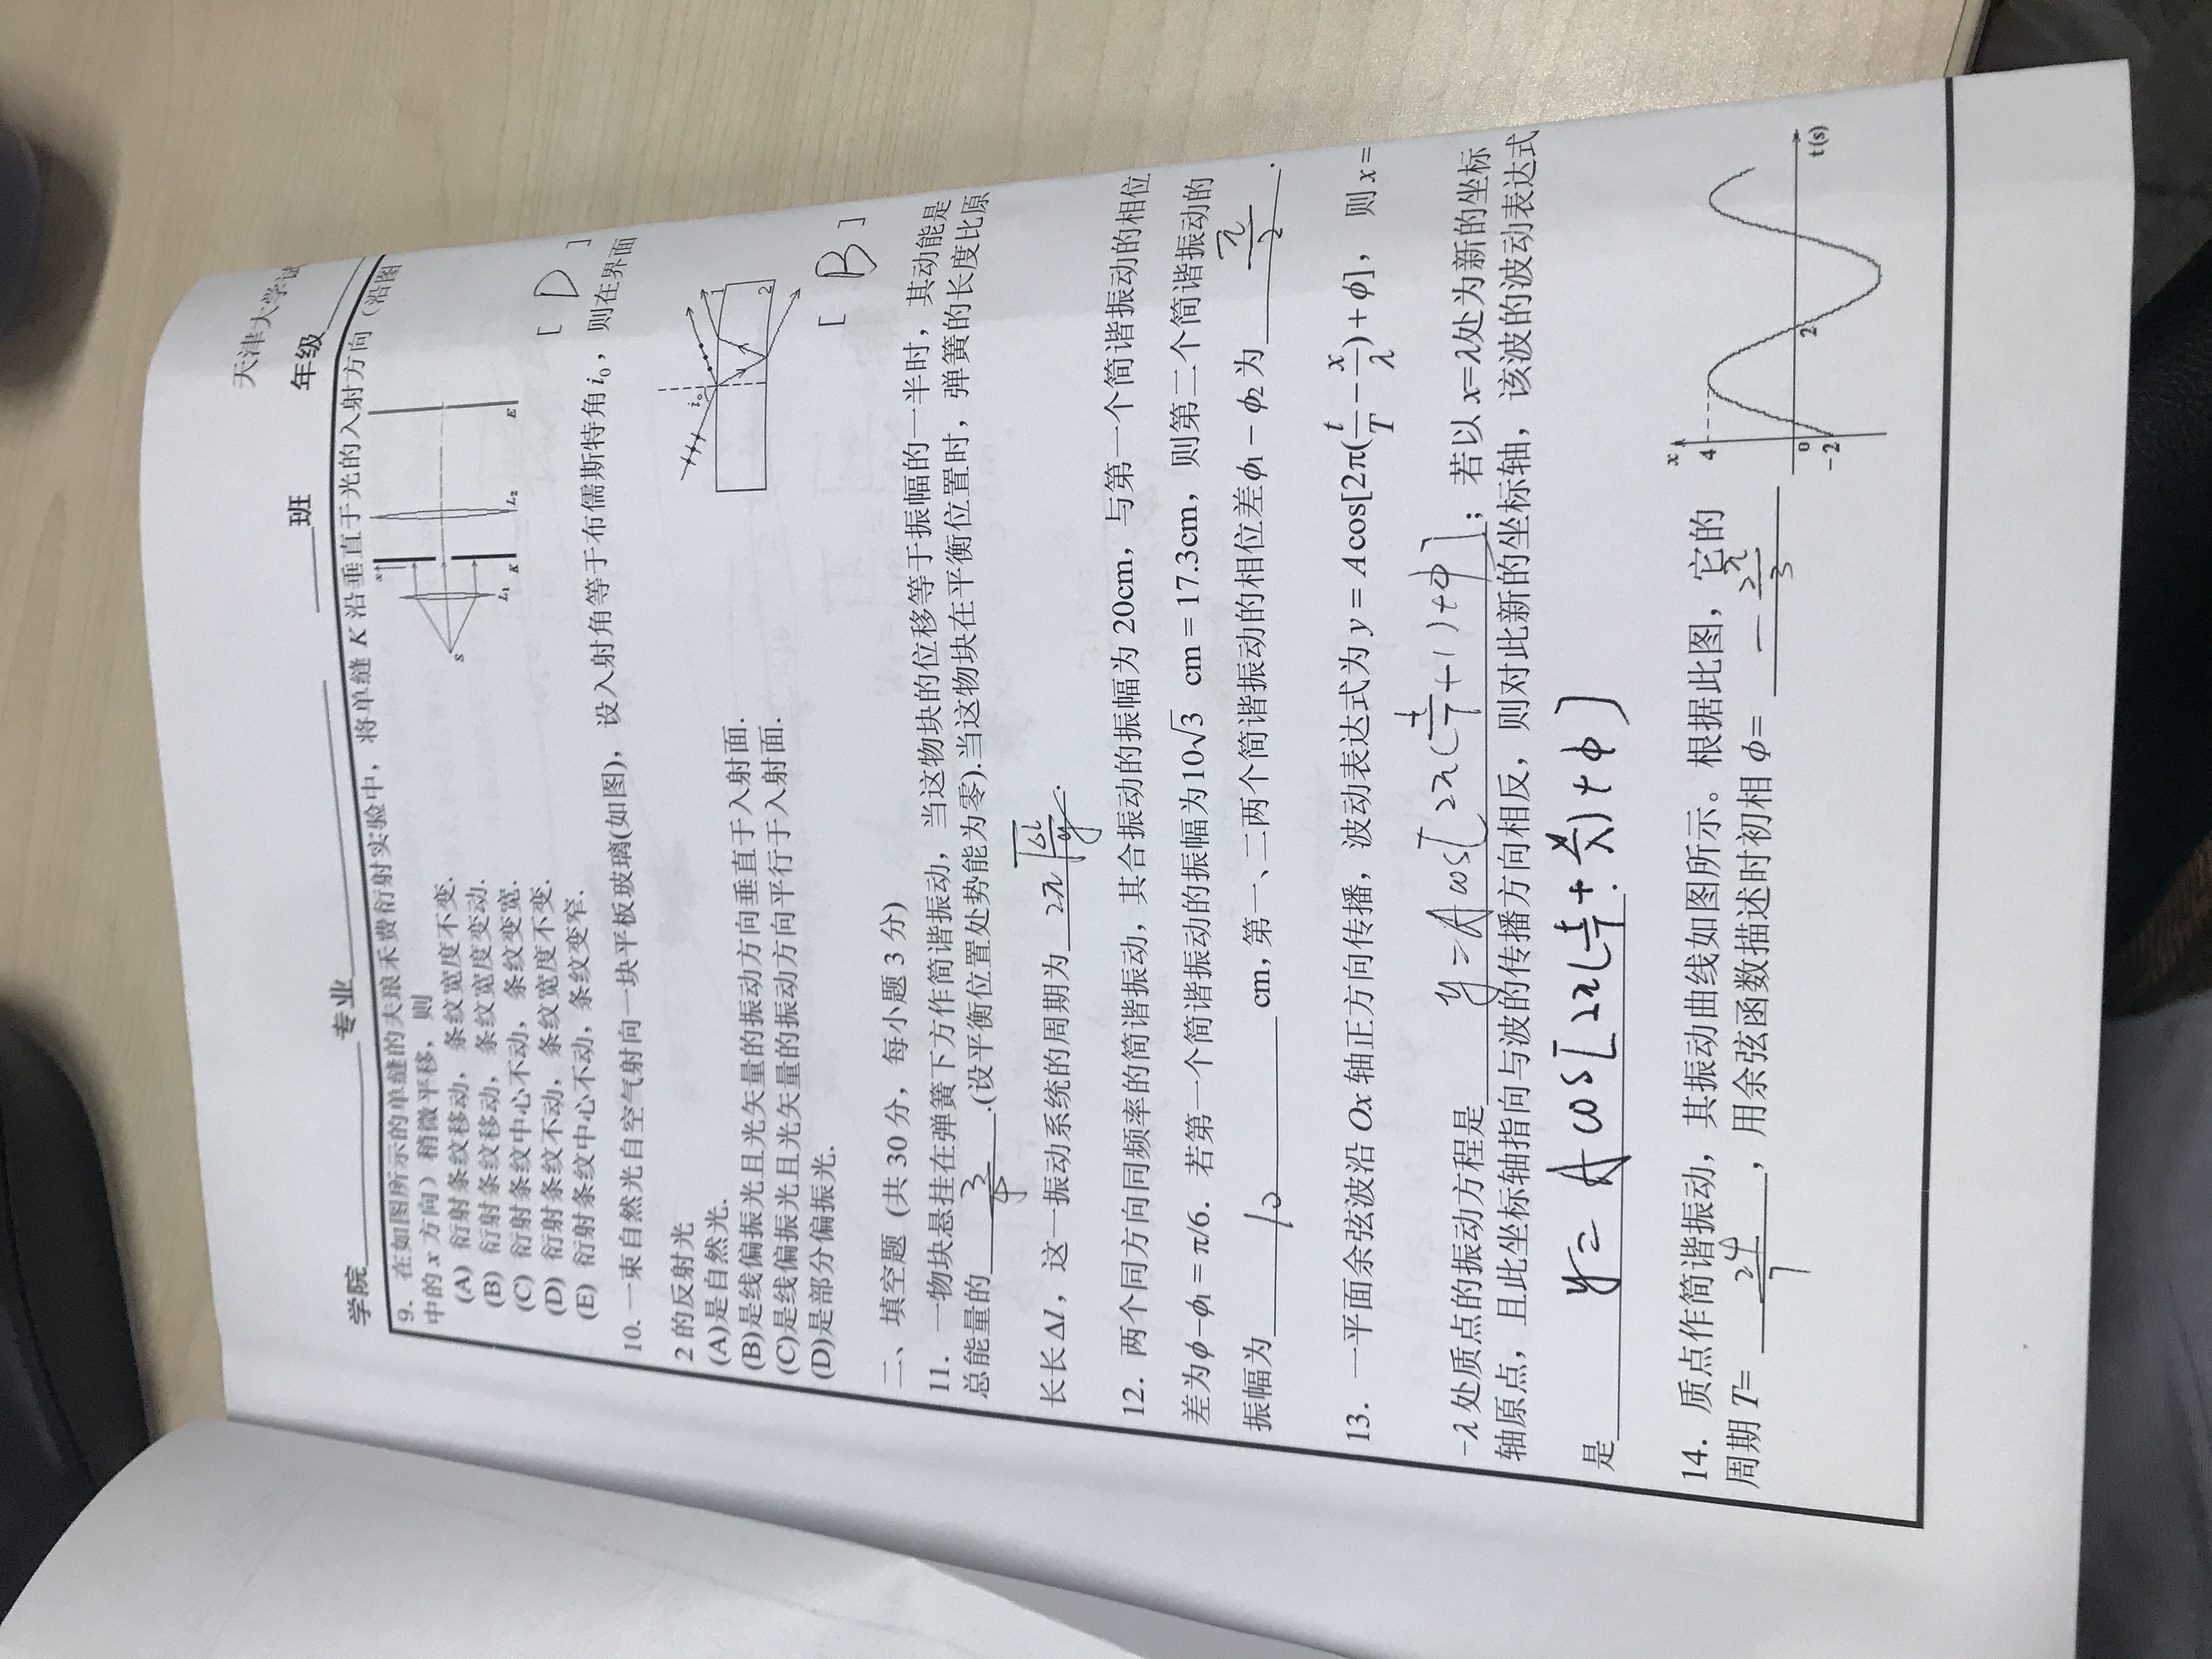 天津大学试
学院 专业 班 年级
9. 在如图所示的单缝的夫琅禾费衍射实验中，将单缝 K 沿垂直于光的入射方向（沿图
中的 x 方向）稍微平移，则
(A) 衍射条纹移动，条纹宽度不变.
(B) 衍射条纹移动，条纹宽度变动.
(C) 衍射条纹中心不动，条纹变宽.
(D) 衍射条纹不动，条纹宽度不变.
(E) 衍射条纹中心不动，条纹变窄.
x
S
L₁
K
L₂
E
[ D ]
10. 一束自然光自空气射向一块平板玻璃(如图)，设入射角等于布儒斯特角 i₀，则在界面
2 的反射光
(A)是自然光.
(B)是线偏振光且光矢量的振动方向垂直于入射面.
(C)是线偏振光且光矢量的振动方向平行于入射面.
(D)是部分偏振光.
i₀
1
2
[ B ]
二、填空题 (共 30 分，每小题 3 分)
11. 一物块悬挂在弹簧下方作简谐振动，当这物块的位移等于振幅的一半时，其动能是
总能量的 3/4 .(设平衡位置处势能为零).当这物块在平衡位置时，弹簧的长度比原
长长 Δl，这一振动系统的周期为 2π√(Δl/g) .
12. 两个同方向同频率的简谐振动，其合振动的振幅为 20cm，与第一个简谐振动的相位
差为 ϕ−ϕ₁ = π/6. 若第一个简谐振动的振幅为 10√3 cm = 17.3cm，则第二个简谐振动的
振幅为 10 cm，第一、二两个简谐振动的相位差 ϕ₁ − ϕ₂ 为 π/2 .
13. 一平面余弦波沿 Ox 轴正方向传播，波动表达式为 y = A cos[2π(t/T − x/λ) + ϕ]， 则 x =
-λ 处质点的振动方程是 y = A cos[2π(t/T + 1) + ϕ] ；若以 x=λ处为新的坐标
轴原点，且此坐标轴指向与波的传播方向相反，则对此新的坐标轴，该波的波动表达式
是 y = A cos[2π(t/T + x/λ) + ϕ] .
14. 质点作简谐振动，其振动曲线如图所示。根据此图，它的
周期 T= 24/7 ，用余弦函数描述时初相 ϕ= − 2π/3
x
4
0
2
t(s)
−2